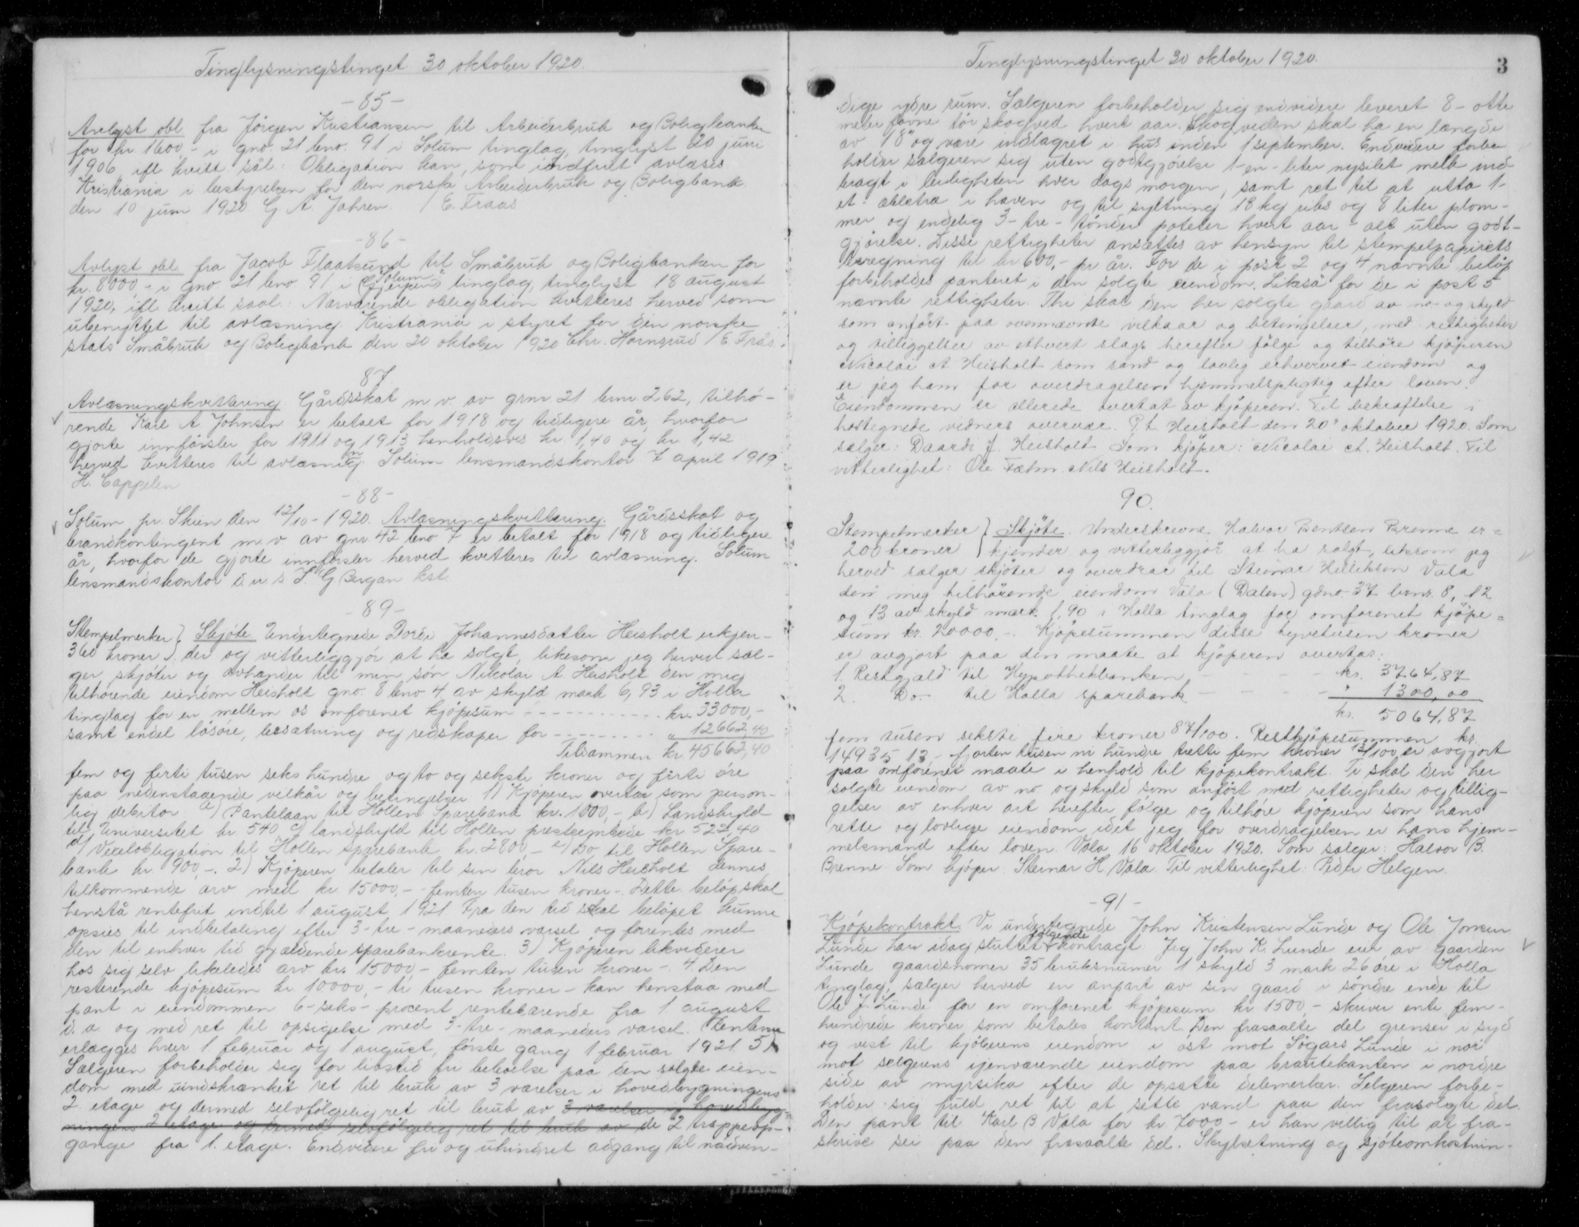 Tinglysningstinget 30 oktober 1920
-85-
Avlyst obl fra Jörgen Kristiansen til Arbeiderbruk og Boligbanken
for kr 1600,- i gno. 21 bno. 91 i Solum tinglag, tinglyst 20 juni
1906 ifl kvitt sål: Obligation kan, som indfriet avlæses
Kristiania i bestyrelsen for den norske Arbeiderbruk og Boligbank
den 10 juni 1920 G A Jahren / E. Traas
-86-
Avlyst obl. fra Jacob Flaatsund til Småbruk og Boligbanken for
kr. 8000,- i gno 21 bno 91 i Solum tinglag, tinglyst 18 august
1920, ifl kvitt saal: Nærværende obligation kvitteres herved som
ubenyttet til avlæsning Kristiania i styret for den norske
stats Småbruk og Boligbank den 20 oktober 1920 Chr. Hornsrud / E Trås.
87
Avlæsningskvittering Gårdsskat m v av gnr 21 bnr 262, tilhö-
rende Karl A Johnsen er betalt for 1918 og tidligere år, hvorfor
gjorte innförsler for 1911 og 1913 henholdsvis kr 1,40 og kr 1,42
herved kvitteres til avlæsning Solum lensmandskontor 7 april 1919
H. Cappelen
-88-
Solum pr. Skien den 12/10-1920. Avlæsningskvittering. Gårdsskat og
brandkontingent m v av gnr 42 bno 7 er betalt for 1918 og tidligere
år, hvorfor de gjorte innförsler herved kvitteres til avlæsning. Solum
lensmandskontor G Bergan kst
-89-
Stempelmerker } Skjöte Undertegnede Dorde Johannesdatter Heisholt erkjen-
360 kroner } der og vitterliggjör at ha solgt, likesom jeg herved sæl-
ger, skjöter og avhander til min sön Nikolai A Heisholt den mig
tilhörende eiendom Heisholt gno 8 bno 4 av skyld mark 6,93 i Holla
tinglag for en mellem os omforenet kjöpesum - - - - - kr. 33000,-
samt endel lösöre, besætning og redskaper for - - - - - " 12662,40
Tilsammen kr 45662,40
fem og förti tusen seks hundre og to og seksti kroner og förti öre
paa nedenstaaende vilkår og betingelser 1) Kjöperen overtar som person-
lig debitor a) Pantelaan til Hollen Sparebank kr. 1000,- b) Landskyld
til Universitet kr 540, c) landskyld til Hollen prestegnbede kr 522,40
d) Vexelobligation til Hollen sparebank kr. 2800,- e) Do til Hollen Spare-
bank kr 900,-. 2) Kjöperen betaler til sin bror Nils Heisholt dennes
tilkommende arv med kr 15000,- femten tusen kroner-. Dette belöp skal
henstå rentefrit indtil 1 august 1921 Fra den tid skal belöpet kunne
opsies til indbetaling efter 3-tre- maaneders varsel og forrentes med
den til enhver tid gjældende sparebankrente. 3) Kjöperen likviderer
hos sig selv likeledes arv kr. 15000,- femten tusen kroner-. 4. Den
resterende kjöpesum kr 10000,- ti tusen kroner- kan henstaa med
pant i eiendommen 6-seks- procent rentebærende fra 1 august
d. a og med ret til opsigelse med 3-tre- maaneders varsel. Renterne
erlægges hver 1 februar og 1 august, förste gang 1 februar 1921 5)
Sælgeren forbeholder sig for livstid fri beboelse paa den solgte eien-
dom med uindskrænket ret til bruk av 3 værelser i hovedbygningens
2 etage og dermed selvfölgelig ret til bruk av 3 værelser i hovedbyg-
ningens 2 etage og dermed selvfölgelig ret til bruk av de 2 trappeop-
gange fra 1. etage. Endvidere fri og uhindret adgang til nödven-
Tinglysningstinget 30 oktober 1920.
3
dige ydre rum. Sælgeren forbeholder sig endvidere leveret 8-otte
meter favne tör skogved hvert aar. Skogveden skal ha en længde
av 18" og være indlagret i hus inden 1 september. Endvidere forbe-
holder sælgeren sig uten godtgjörelse 1-en-liter nysilet melk ind-
bragt i leiligheten hver dags morgen, samt ret til at utta 1-
et- æbletræ i haven og til syltning 18 kg ribs og 8 liter plom-
mer og endelig 3-tre- tönder poteter hvert aar alt uten godt-
gjörelse. Disse rettigheter ansættes av hensyn til stempelpapirets
beregning til kr 600,- pr år. For de i post 2 og 4 nævnte belöp
forbeholdes panteret i den solgte eiendom. Likesaa for de i post 5
nævnte rettigheter. Thi skal den her solgte gaard av no. og skyld
som anfört paa ovennævnte vilkaar og betingelser, med rettigheter
og tilliggelser av ethvert slags herefter fölge og tilhöre kjöperen
Nicolai A Heisholt som sand og lovlig erhvervet eiendom og
er jeg ham for overdragelsen hjemmelspligtig efter loven.
Eiendommen er allerede overtat av kjöperen. Til bekræftelse i
hostegnede vidners overvær. Pt. Heisholt den 20' oktober 1920. Som
sælger: Daarde J. Heisholt Som kjöper: Nicolai A. Heisholt. Til
vitterlighet: Ole Nils Heisholt.
90.
Stempelmerker } Skjöte. Underskrevne Halvor Bentsen Brenne er-
200 kroner } kjender og vitterliggjör at ha solgt, likesom jeg
herved sælger skjöter og overdrar til Steinar Henriksen Vala
den mig tilhörende eiendom Vala (Dalen) gdno 37 brno. 8, 12
og 13 av skyld mark 1,90 i Holla tinglag for omforenet kjöpe-
sum kr. 20000,-. Kjöpesummen disse tyvetusen kroner
er avgjort paa den maate at kjöperen overtar:
1. Restgjæld til Hypothekbanken - - - kr. 3764,87
2. Do- til Holla sparebank - - - " 1300,00
kr. 5064,87
fem tusen seksti fire kroner 87/100. Restkjöpesummen kr.
14935,13 fjorten tusen ni hundre tretti fem kroner 13/100 er avgjort
paa omforenet maate i henhold til kjöpekontrakt. Ti skal den her
solgte eiendom av no og skyld som anfört med rettigheter og tillig-
gelser av enhver art herefter fölge og tilhöre kjöperen som hans
rette og lovlige eiendom idet jeg for overdragelsen er hans hjem-
melsmand efter loven. Vala, 16 oktober 1920. Som sælger: Halvor B.
Brenne Som kjöper: Steinar H Vala. Til vitterlighet: Peder Helgen.
-91-
Kjöpekontrakt. Vi undertegnede John Kristensen Lunde og Ole Jonsen
Lunde har idag sluttet fölgende kontragt: Jeg John K. Lunde eier av gaarden
Lunde gaardsnomer 35 bruksnumer 1 skyld 3 mark 26 öre i Holla
tinglag, sælger herved en anpart av sin gaard i söndre ende til
Ole J. Lunde for en omforenet kjöpesum kr 1500,- skriver ente fem-
hundrede kroner som betales kontant Den frasolgte del grenser i syd
og vest til kjöberens eiendom i öst mot Sögars Lunde i nor
mot selgerens igjenværende eiendom paa brautekanten i nordre
side av myrsika efter de opsatte delemerker. Selgeren forbe-
holder sig fuld ret til at sette vand paa den frasolgte del
Den pant til Karl B Vala for kr 7000- er han villig til at fra-
skrive sei paa den frasolgte del. Skylsetning og skjöteomkostnin-